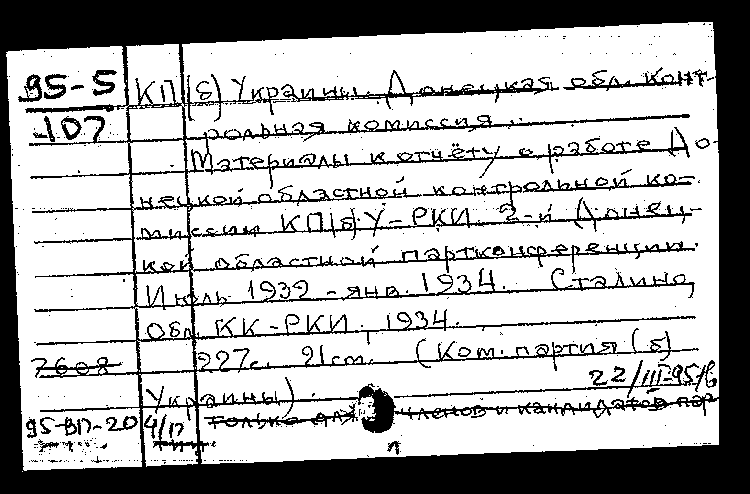 95-5 КП(б) Украины. Донецкая обл. конт-
107 рольная комиссия.
Материалы к отчёту о работе До-
нецкой областной контрольной ко-
миссии КП(б)У-РКИ 2-й Донец-
кой областной партконференции.
Июль 1932 - янв. 1934. Сталино,
Обл. КК-РКИ, 1934.
7608 227с. 21см. (Ком. партия (б)
Украины).
22/III-95/6
95-ВП-20 4/17 только для членов и кандидатов пар